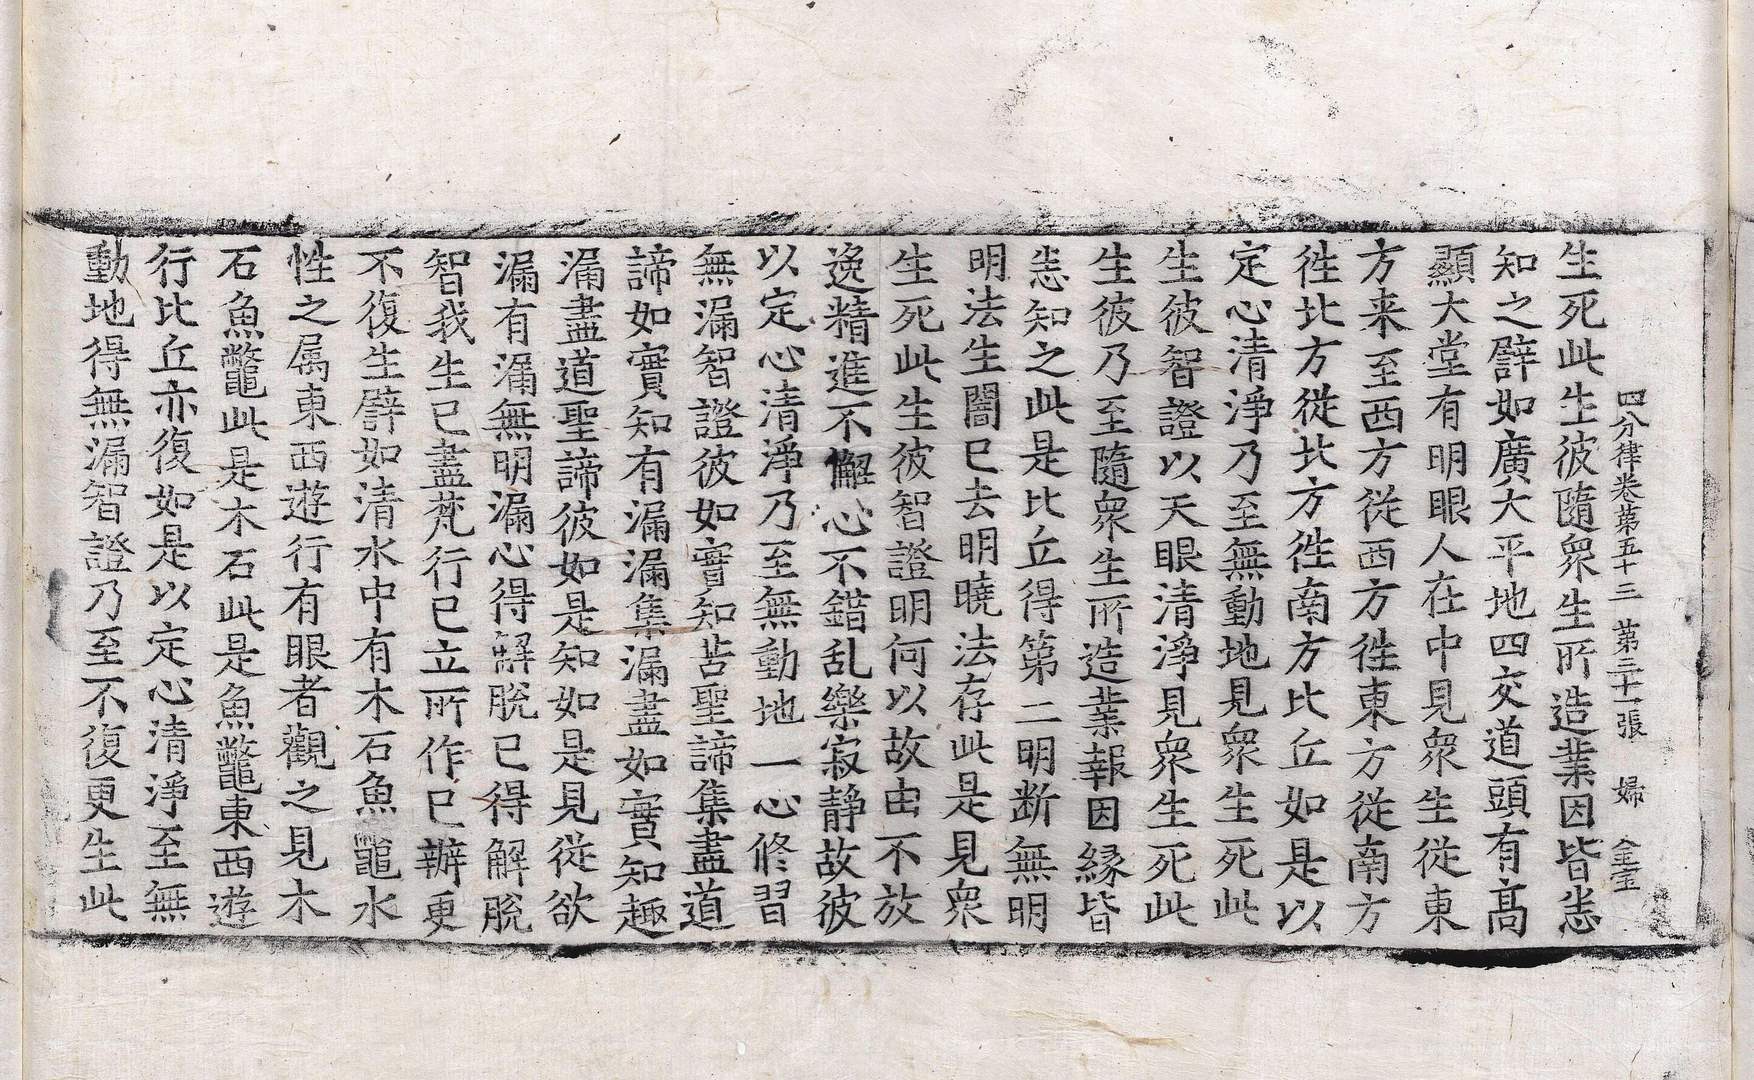 四分律卷第五十三 第三十一張 婦 金宝
生死此生彼隨衆生所造業因皆悉
知之譬如廣大平地四交道頭有髙
顯大堂有明眼人在中見衆生從東
方来至西方從西方徃東方從南方
徃北方從北方徃南方比丘如是以
定心清淨乃至無動地見衆生死此
生彼智證以天眼清淨見衆生死此
生彼乃至隨衆生所造業報因縁皆
悉知之此是比丘得第二明断無明
明法生闇已去明曉法存此是見衆
生死此生彼智證明何以故由不放
逸精進不懈心不錯乱樂寂静故彼
以定心清淨乃至無動地一心修習
無漏智證彼如實知苦聖諦集盡道
諦如實知有漏漏集漏盡如實知趣
漏盡道聖諦彼如是知如是見從欲
漏有漏無明漏心得解脫已得解脫
智我生已盡梵行已立所作已辦更
不復生譬如清水中有木石魚鼈水
性之属東西遊行有眼者觀之見木
石魚鼈此是木石此是魚鼈東西遊
行比丘亦復如是以定心清淨至無
動地得無漏智證乃至不復更生此